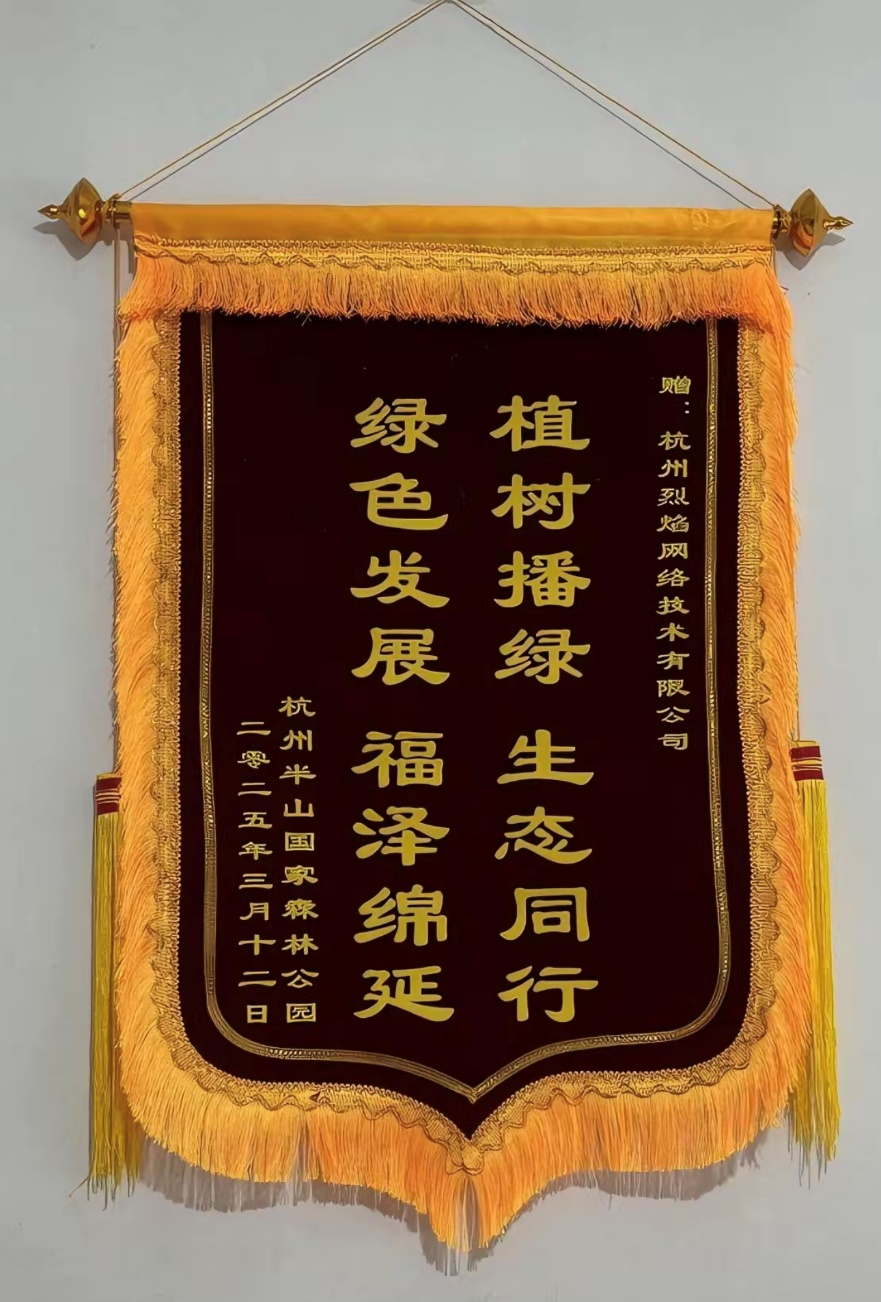 赠：杭州烈焰网络技术有限公司
植树播绿 生态同行
绿色发展 福泽绵延
杭州半山国家森林公园
二零二五年三月十二日